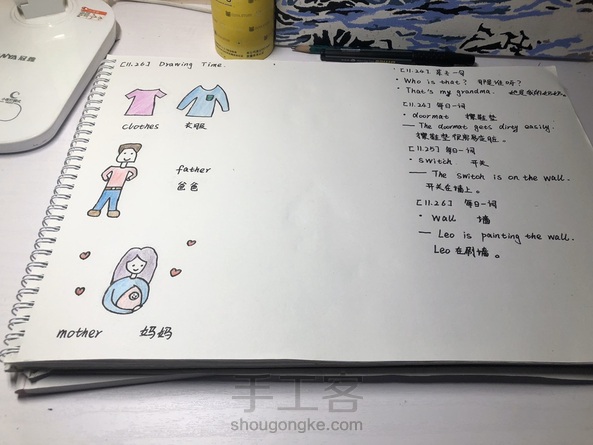 [11.26] Drawing Time.
clothes 衣服
father
爸爸
mother 妈妈
[11.24] 每日一句
· Who is that? 那是谁呀?
· That's my grandma.
[11.24] 每日一词
· doormat 擦鞋垫
— The doormat gets dirty easily.
擦鞋垫很容易变脏。
[11.25] 每日一词
· switch 开关
— The switch is on the wall.
开关在墙上。
[11.26] 每日一词
· wall 墙
— Leo is painting the wall.
Leo在刷墙。
手工客
shougongke.com